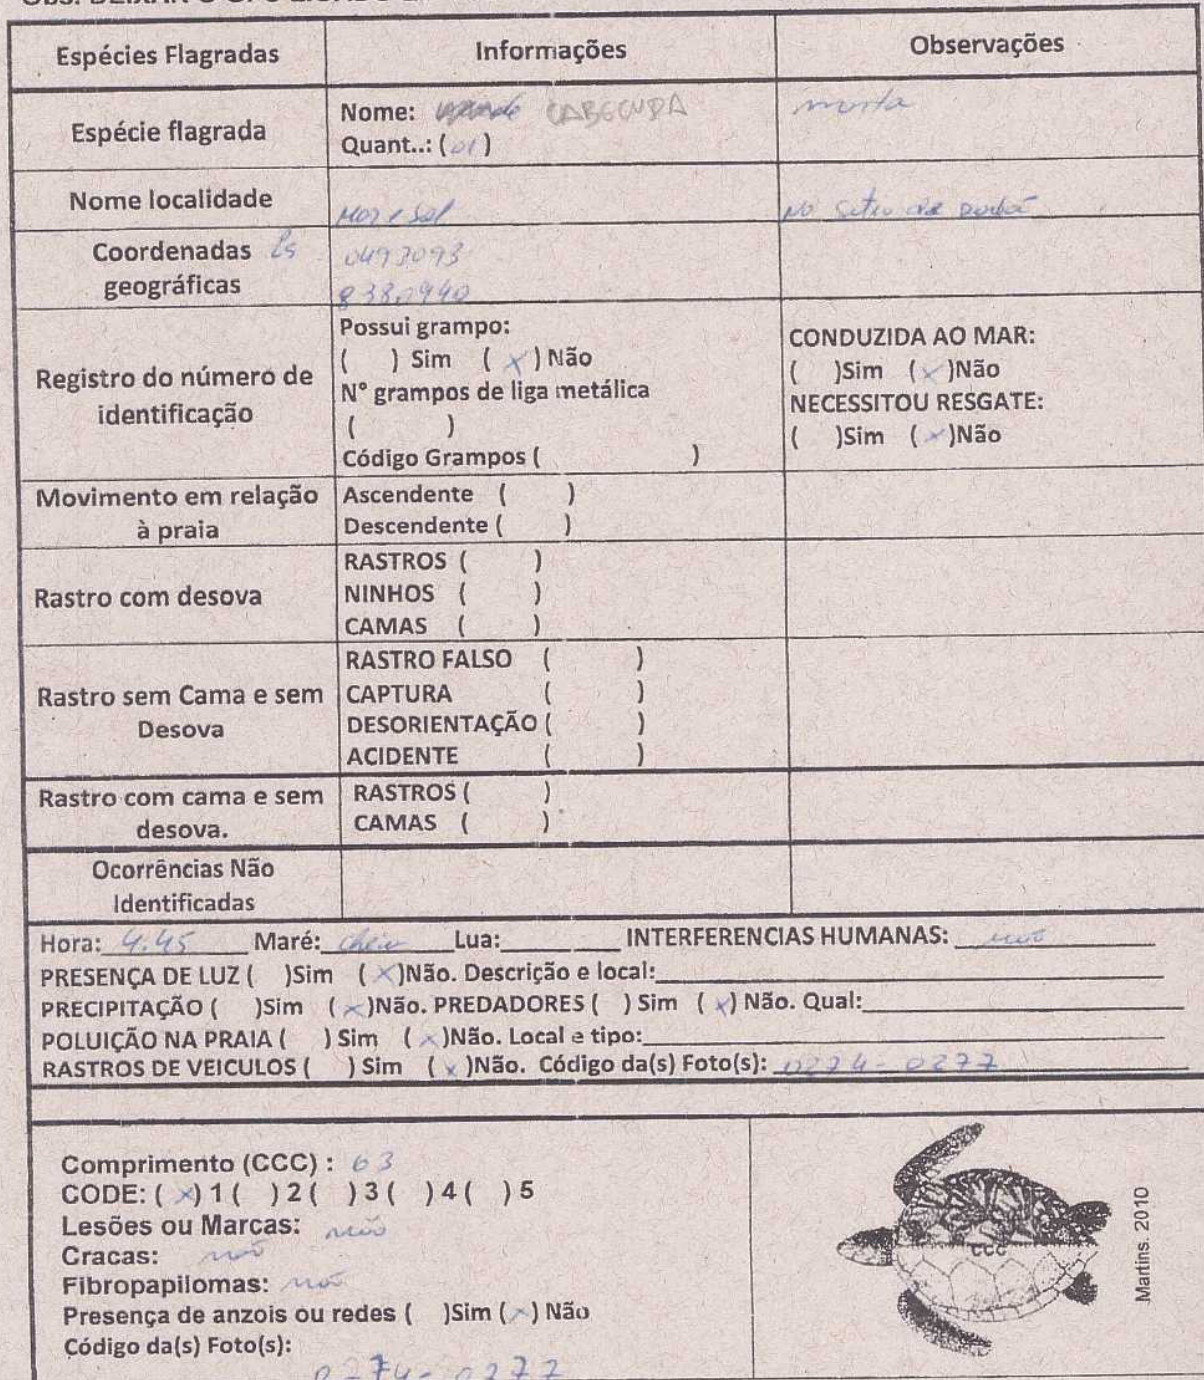 Espécies Flagradas Informações Observações
Espécie flagrada
Nome: CABECUDA
Quant..: (01)
morta
Nome localidade
Mar e Sol
no sitio de
Coordenadas
geográficas
0493093
8380940
Registro do número de
identificação
Possui grampo:
( ) Sim ( x ) Não
N° grampos de liga metálica
( )
Código Grampos ( )
CONDUZIDA AO MAR:
( )Sim ( x )Não
NECESSITOU RESGATE:
( )Sim ( x )Não
Movimento em relação
à praia
Ascendente ( )
Descendente ( )
Rastro com desova
RASTROS ( )
NINHOS ( )
CAMAS ( )
Rastro sem Cama e sem
Desova
RASTRO FALSO ( )
CAPTURA ( )
DESORIENTAÇÃO ( )
ACIDENTE ( )
Rastro com cama e sem
desova.
RASTROS ( )
CAMAS ( )
Ocorrências Não
Identificadas
Hora: 4:45 Maré: cheia Lua: INTERFERENCIAS HUMANAS: não
PRESENÇA DE LUZ ( )Sim ( x )Não. Descrição e local:
PRECIPITAÇÃO ( )Sim ( x )Não. PREDADORES ( ) Sim ( x ) Não. Qual:
POLUIÇÃO NA PRAIA ( ) Sim ( x )Não. Local e tipo:
RASTROS DE VEICULOS ( ) Sim ( x )Não. Código da(s) Foto(s): 0274-0277
Comprimento (CCC) : 63
CODE: ( x ) 1 ( ) 2 ( ) 3 ( ) 4 ( ) 5
Lesões ou Marcas: não
Cracas: não
Fibropapilomas: não
Presença de anzois ou redes ( )Sim ( x ) Não
Código da(s) Foto(s):
0274-0277
CCC
Martins. 2010